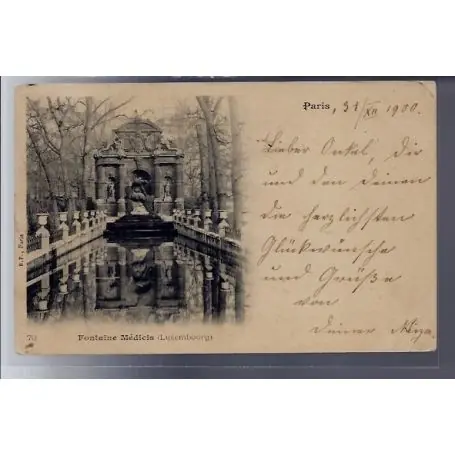 Paris, 31/XII 1900.
Lieber Onkel, Dir
und den Deinen
die herzlichsten
Glückwünsche
und Grüße
von
Deiner
B.F., Paris
70 Fontaine Médicis (Luxembourg)